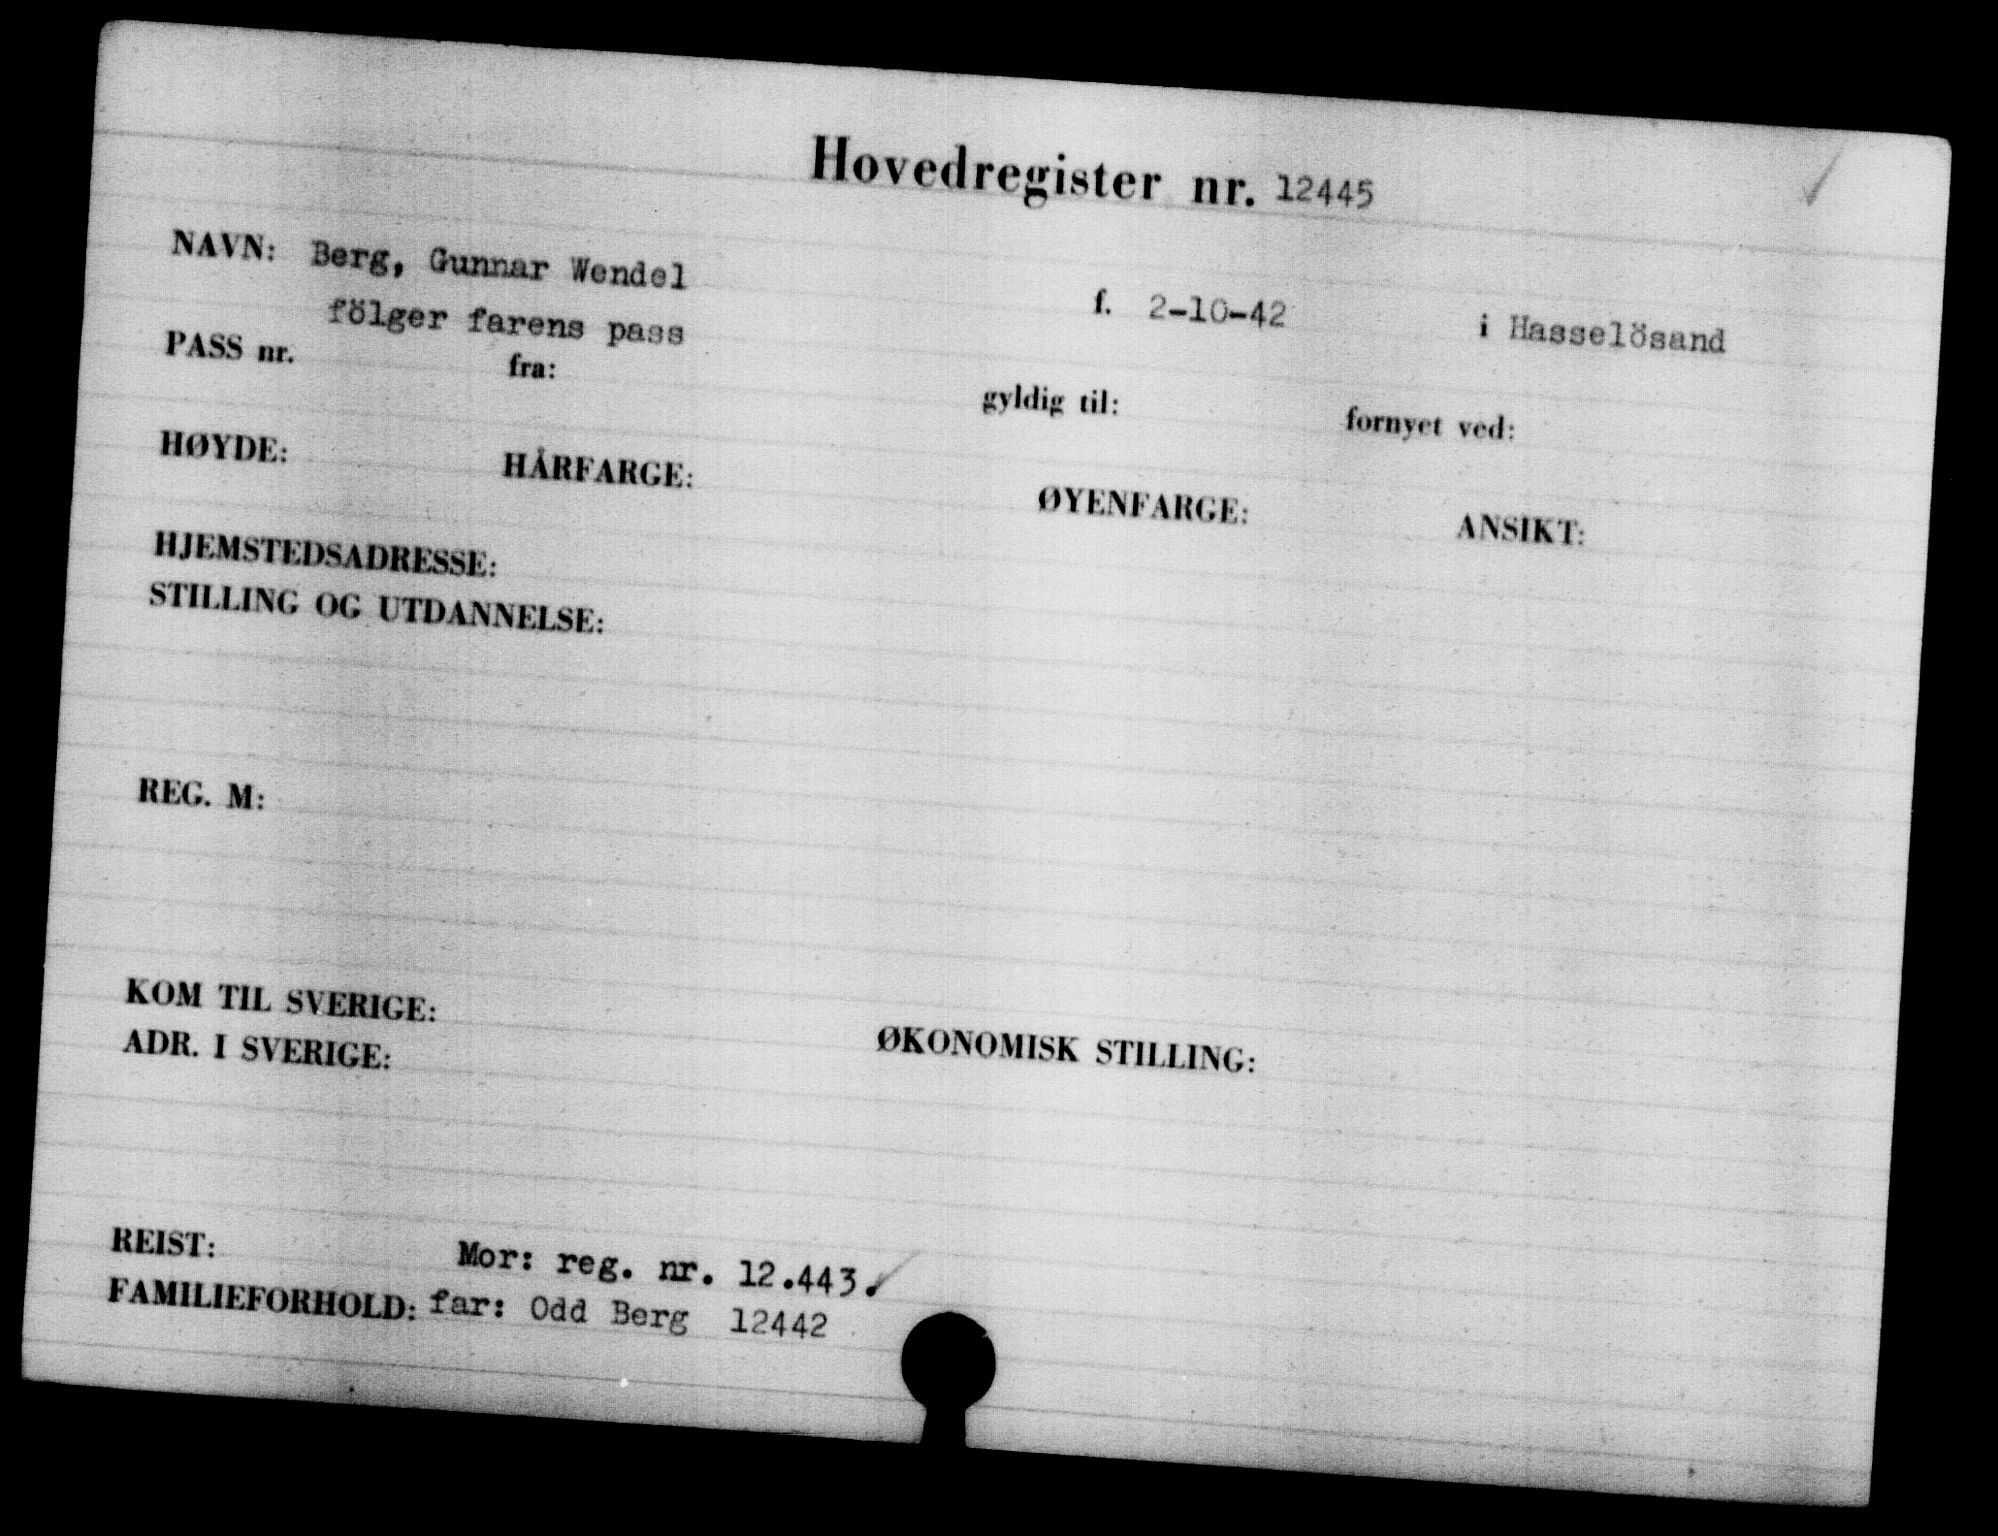 Hovedregister nr. 12445
NAVN: Berg, Gunnar Wendel f. 2-10-42 i Hasselösand
fölger farens pass
PASS nr. fra: gyldig til: fornyet ved:
HØYDE: HÅRFARGE: ØYENFARGE: ANSIKT:
HJEMSTEDSADRESSE:
STILLING OG UTDANNELSE:
REG. M:
KOM TIL SVERIGE:
ADR. I SVERIGE: ØKONOMISK STILLING:
REIST: Mor: reg. nr. 12.443.
FAMILIEFORHOLD: far: Odd Berg 12442